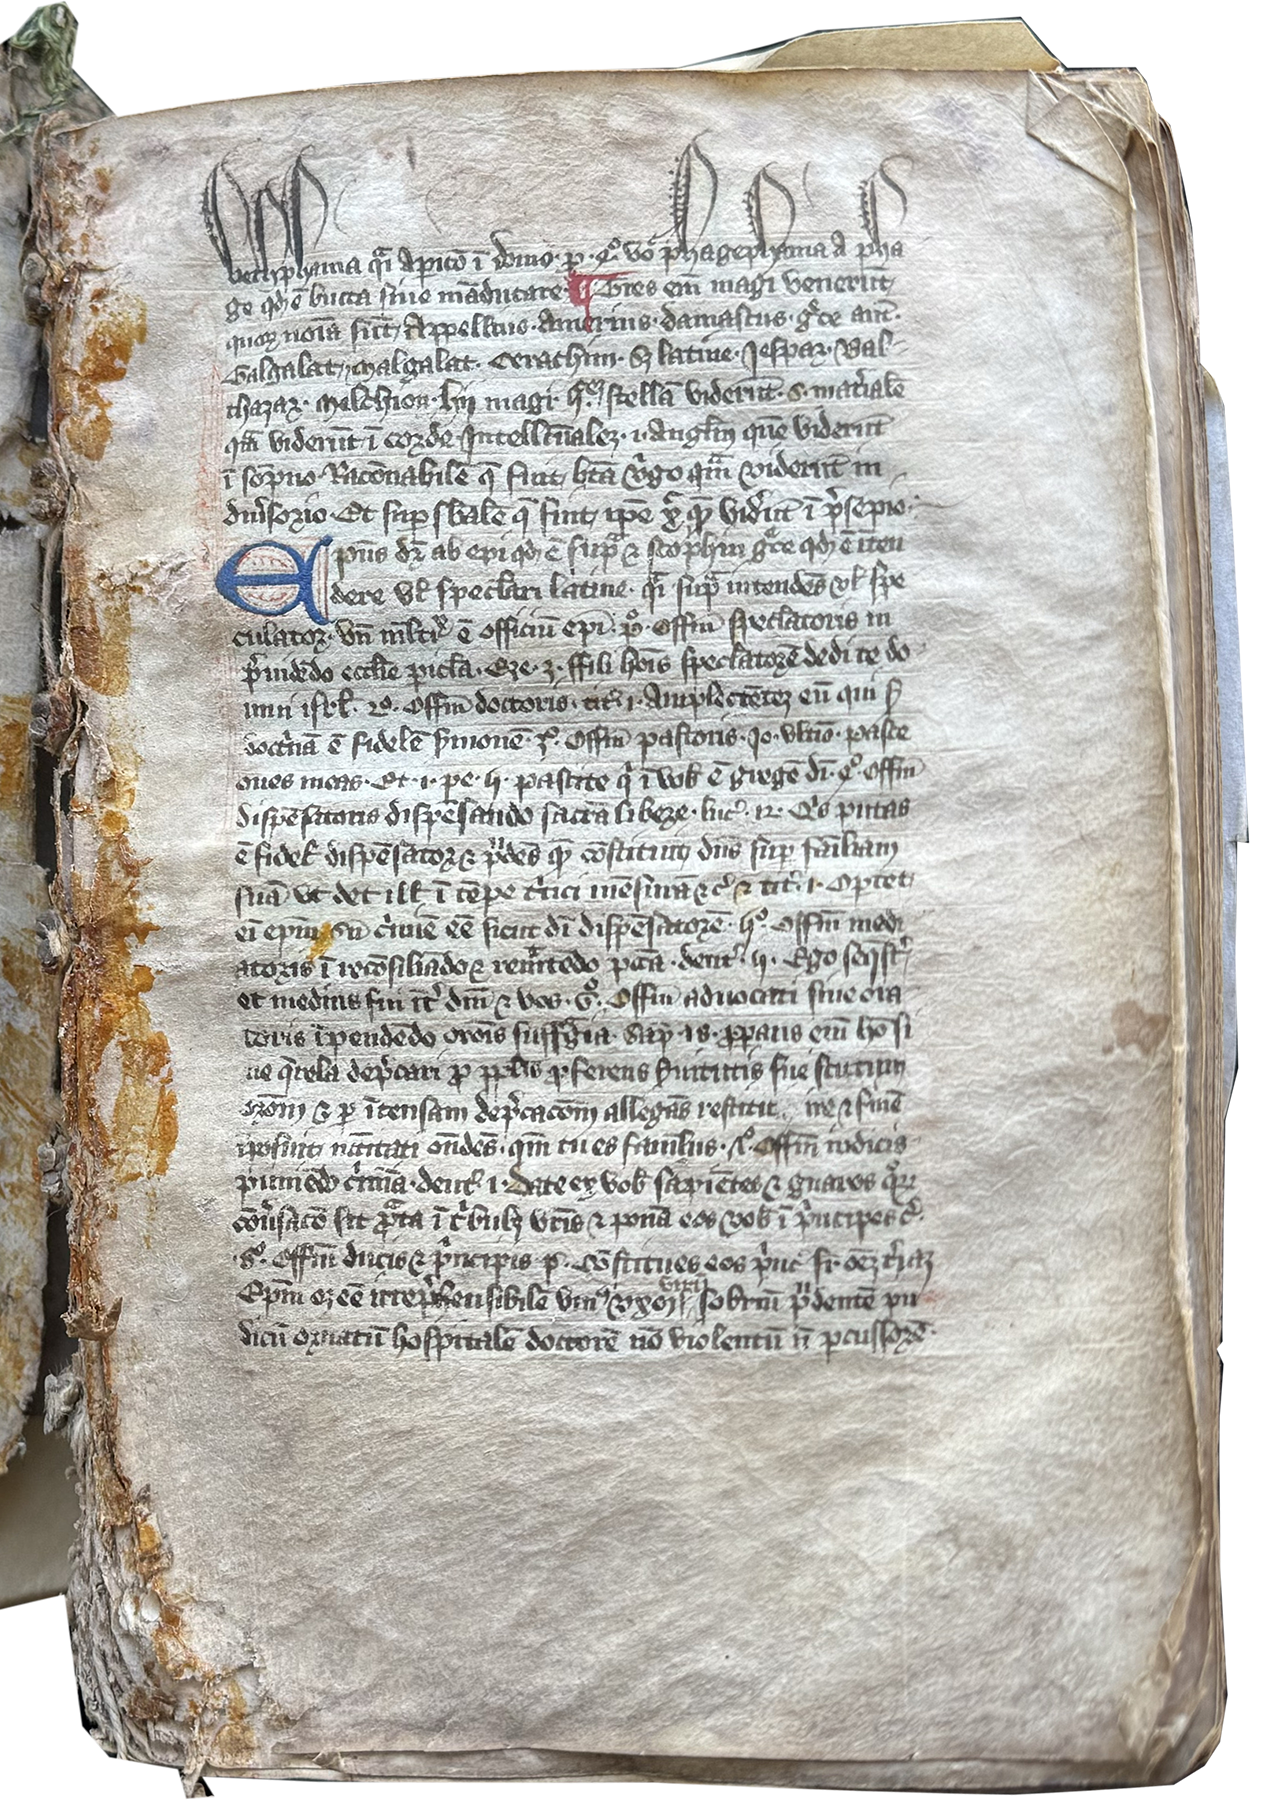 bethphania qͣi apͥcio ī domo · p · qͦ · vo phagephania a pha
ge qḋ ē bucca siue māducare · ¶ Tres em̄ magi venerūt
quoꝝ noīa sūt Appellius · Amerius · damascus · gͣce aut̄ ·
Galgalat · malgalat · Serachim · Sꝫ latine · Jespar · Bal-
thazar · Melchior · hij magi · stellā viderūt · s · māiale
qͣ viderūt ī corde · Intellectualē · i · Anglm̄ quē viderūt
ī sōpno · Racōnabilē q̄ fuit btā vͥgo qm̄ viderūt in
diūsorio · Et sup̄ sbalē q̄ fuit ip̄e xp̄ quē vidērt ī pͥsepio ·
Ep̄us dr̄ ab epi qḋ ē supͣ ⁊ scophin gͣce qḋ ē itēn
dere vl̄ speclari latine · qͣi supͣ intendēs vl̄ spe
culator · vn̄ ml̄tiᵡ ē officiū ep̄i · pͦ · offm̄ speclatoris in
pͥuidēdo eccl̄ie pͥicla · Eze · 3 · ffili hoīs speclatorē dedi te do
mui isrl̄ · 2ͦ · offm̄ doctoris · titͦ · i · Amplectētē eū qui s̄
doctͥnā ē fidelē smonē · 3ͦ · Offm̄ pastoris · Jo · vltīo · pasce
oues meas · Et · i · pe · ii · pascite qͥ ī vob ē gregē dī · 4ͦ · offm̄
dispēsatoris dispēsando sacrā libere · luc̄ · 12 · Qͥs putas
ē fidel̄ dispēsator ⁊ pͥdēs quē cōstituit dn̄s sup̄ fāiliam
suā vt det ill̄ ī tēpe tͥtici mēsurā ⁊c̄ ⁊ titͦ · i · Optet
eī ep̄m sn̄ cͥmīe eē sicut dī dispēsatorē · 5ͦ · offm̄ medi
atoris ī recōsiliādo ⁊ remͥtēdo pctā · deut̄ · 5 · Ego seqͥstͥ
et medius fui īt dm̄ ⁊ vos · 6ͦ · Offm̄ aduocati siue ora
toris īpendēdo orōis suffͣgia · Sap̄ · 18 · ꝓpans em̄ hō si
ne qͥrela dep̄cari ꝓ pplis ꝓferens sͥuitutis sue scutum
orōm ⁊ p ītensam dep̄cacōm allegās restitit ire ⁊ finē
īposuit nc̄citati ondēs · qm̄ tu es famlus · 7ͦ · Offm̄ iudicis
puniēdo cͥmīa · deut̄ · i · Date ex vob sapiētes ⁊ gnaros qͦꝝ
cōūsacō sit ꝓbata ī tͥbubꝫ vrīs ⁊ ponā eos vob ī pͥncipes ⁊c̄ ·
8ͦ · Offm̄ ducis ⁊ pͥncipis · pͦ · Cōstitues eos pͥnc̄ sͬ · oēꝫ tͬrā
Ep̄m oꝫ eē irrep̄hensibilē vniͦ vxoris virū sobriū pͥdentē pu
dicū ornatū hospitalē doctorē nō violentū n̄ pcussorē ·